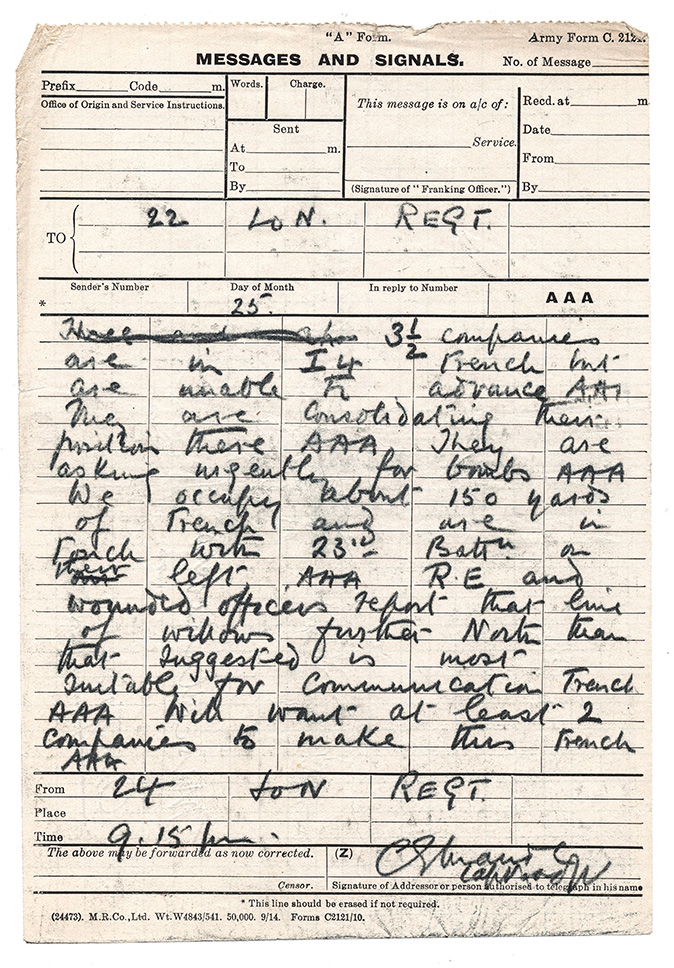 "A" Form. Army Form C. 2121.
MESSAGES AND SIGNALS. No. of Message
Prefix Code m. Words. Charge. This message is on a/c of: Recd. at m
Office of Origin and Service Instructions. Date
Sent Service. From
At m.
To
By (Signature of "Franking Officer.") By
TO 22 LON. REGT.
Sender's Number Day of Month In reply to Number AAA
* 25.
Three and a 3½ companies
are in I4 Trench but
are unable to advance AAA
They are consolidating their
position there AAA They are
asking urgently for bombs AAA
We occupy about 150 yards
of Trench and are in
Touch with 23rd Battn on
their left AAA R.E and
wounded officers report that line
of willows further North than
that suggested is most
suitable for Communication Trench
AAA Will want at least 2
companies to make this Trench
AAA
From 24 LON REGT.
Place
Time 9.15 pm.
The above may be forwarded as now corrected. (Z)
Censor. Signature of Addressor or person authorised to telegraph in his name
* This line should be erased if not required.
(24473). M.R.Co., Ltd. Wt.W4843/541. 50,000. 9/14. Forms C2121/10.